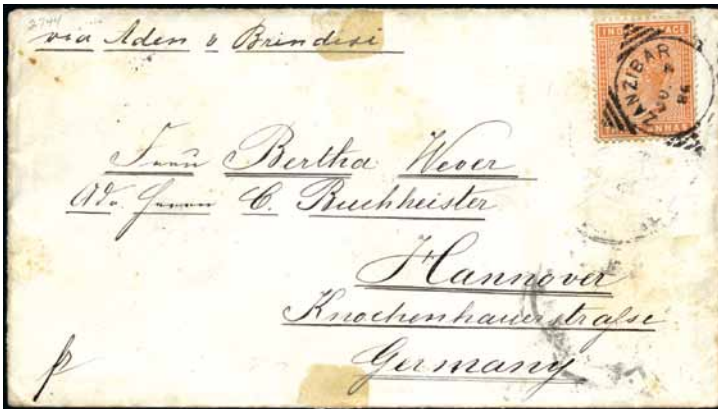 2744
via Aden & Brindisi
INDIA POSTAGE
ZANZIBAR
86
Frau Bertha Wever
Adr. Herrn C. Buchheister
Hannover
Knochenhauerstraße
Germany